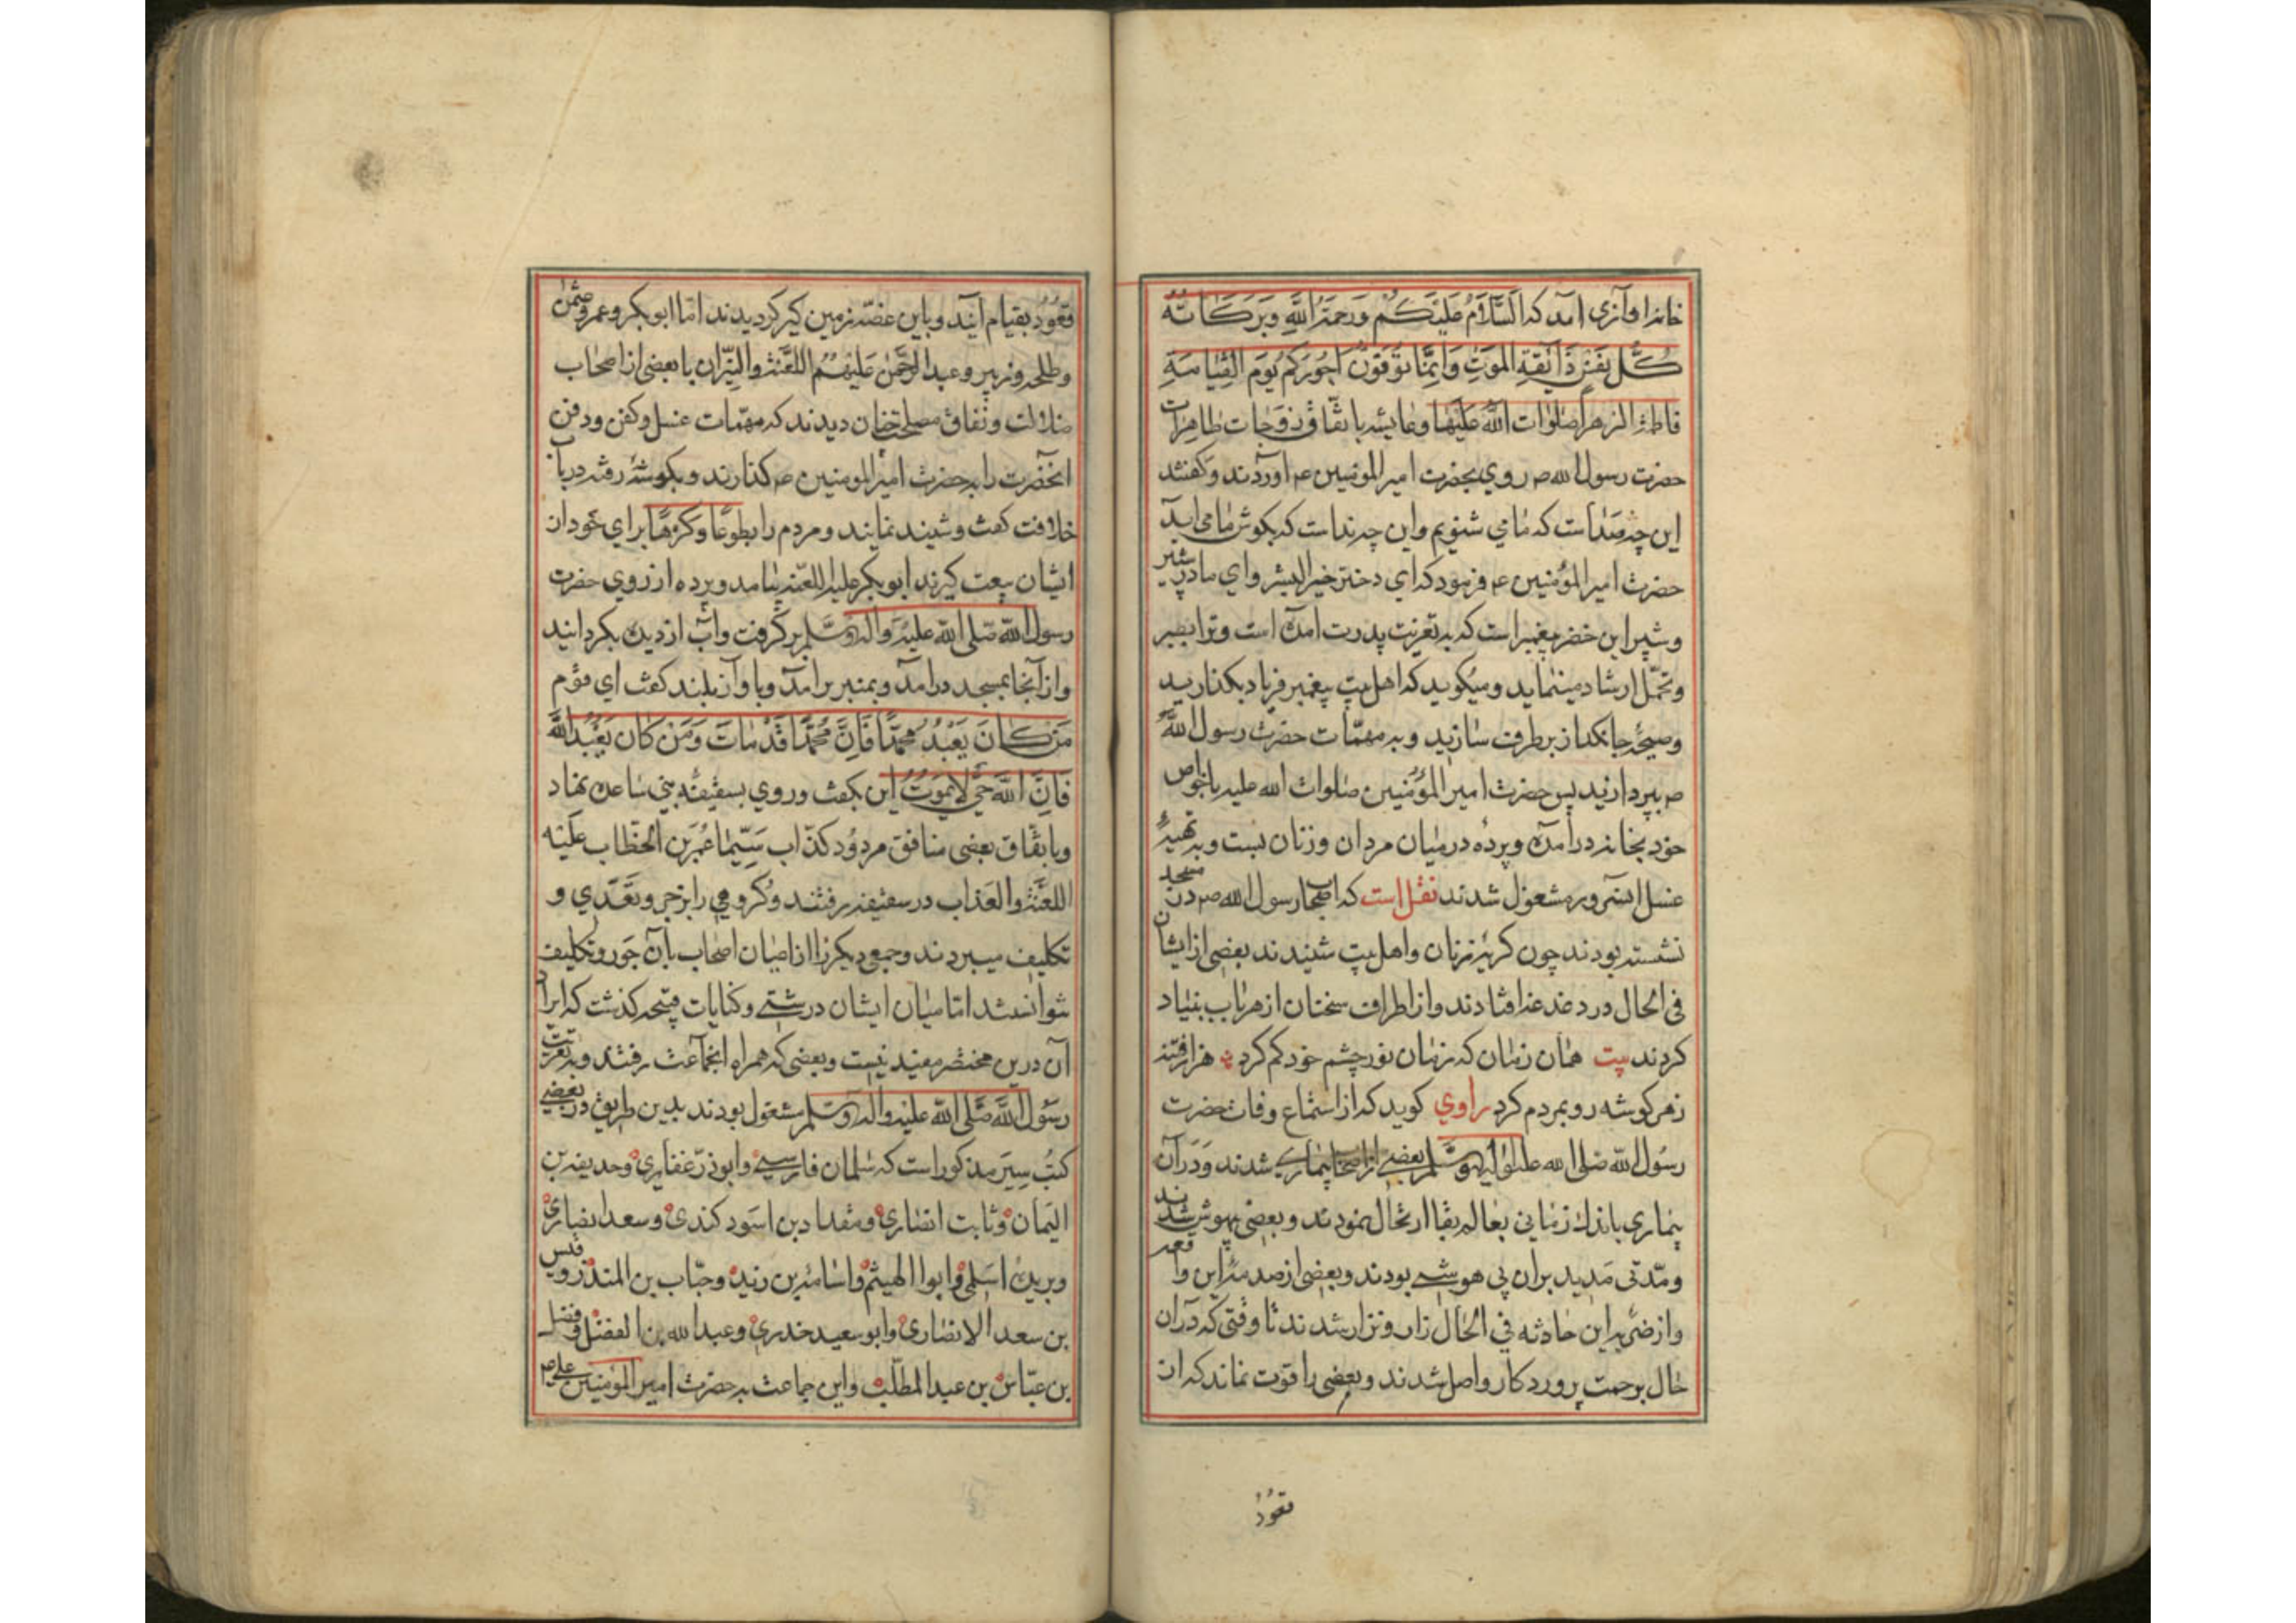 خانه اوآزی آمد که اَلسَّلَامُ عَلَیْکُمْ وَرَحْمَةُ اللّٰهِ وَبَرَکَاتُهُ
کُلُّ نَفْسٍ ذَائِقَةُ المَوْتِ وَاِنَّمَا تُوَفَّوْنَ اُجُورَکُمْ یَوْمَ القِیٰامَةِ
فاطمة الزهرا صلوات الله علیها وعایشه با تفاق زوجات طاهرات
حضرت رسول الله صم روی بحضرت امیرالمومنین عم اوردند وکفتند
این چه صداست که ما می شنویم واین چه نداست که بکوش ما می اید
حضرت امیرالمؤمنین عم فرمود که ای دختر خیرالبشر وای مادر شبر
وشبیر این خضر پیغمبر است که به تعزیت پدرت امده است وترا بصبر
وتحمّل ارشاد مینماید ومیکوید که اهل بیت پیغمبر فریاد بکذارید
وصیحهٔ جانکداز برطرف سازید وبه مهمّات حضرت رسول اللّه
صم بپردازید پس حضرت امیرالمؤمنین صلوات الله علیه باخواص
خود بخانه درآمده وپرده درمیان مردان وزنان بست وبه تهیهٔ
غسل انسرور مشغول شدند نقل است که اصحاب رسول الله صم در مسجد
نشسته بودند چون کریهٔ زنان واهل بیت شنیدند بعضی ازایشان
فی الحال در دغدغه افتادند واز اطراف سخنان از هر باب بنیاد
کردند بیت همان زمان که زمان نور چشم خود کم کرد هزار فتنه
زهر کوشه رو بمردم کرد راوی کوید که از استماع وفات حضرت
رسول اللّه صلی الله علیه واله وسلم بعضی از اصحاب بیمار شدند ودرآن
بیماری باندک زمانی بعالم بقا ارتحال نمودند وبعضی بیهوش شدند
ومدّتی مدید بران بی هوشی بودند وبعضی از صدمهٔ این واقعه
واز ضربه این حادثه فی الحال زار ونزار شدند تا وقتی که درآن
حال برحمت پروردکار واصل شدند وبعضی را قوّت نماند که از
قعود
قعود بقیام آیند وباین غصّه زمین کیر کردیدند امّا ابوبکر وعمر وعثمن
وطلحه وزبیر وعبدالرحمن علیهم اللعنة والنیران با بعضی از اصحاب
ضلالت ونفاق مصلحت چنان دیدند که مهمّات غسل وکفن ودفن
انحضرت را به حضرت امیرالمومنین عم کذارند وبکوشهٔ رفته درباب
خلافت کفت وشنید نمایند ومردم را بطوعًا وکرهًا برای خود از
ایشان بیعت کیرند ابوبکر علیه اللعنه بیامد وپرده از روی حضرت
رسول اللّه صلی الله علیه واله وسلم برکرفت وآب از دیده بکردانید
واز آنجا بمسجد درآمد وبمنبر برآمد وبا واز بلند کفت ای قوم
مَنْ کَانَ یَعْبُدُ مُحَمَّدًا فَاِنَّ مُحَمَّدًا قَدْ مَاتَ وَمَنْ کَانَ یَعْبُدُ اللّٰهَ
فَاِنَّ اللّٰهَ حَیٌّ لَا یَمُوتُ این بکفت وروی بسقیفه بنی ساعده نهاد
وباتفاق بعضی منافق مردود کذّاب سَیِّمَا عُمَر بن الخطّاب علیه
اللعنة والعذاب در سقیفه رفتند وکروهی را بزجر وتعدّی و
تکلیف میبردند وجمعی دیکر را از اعیان اصحاب بآن جور وتکلیف
نتوانستند امّا میان ایشان درشتی وکنایات قبیحه کذشت که ایراد
آن درین مختصر مفید نیست وبعضی که همراه انجماعت رفتند وبه تعزیت
رسول اللّه صلّی اللّه علیه واله وسلم مشغول بودند بدین طریق در بعضی
کتب سِیَر مذکور است که سلمان فارسی وابوذر غفاری وحذیفه بن
الیمان وثابت انصاری ومقداد بن اسود کندی وسعد انصاری
وبریده اسلمی وابوا الهیثم واسامة بن زید وحبّاب بن المنذر وقیس
بن سعد الانصاری وابو سعید خدری وعبدالله بن الفضل وفضل
بن عبّاس بن عبدالمطلب واین جماعت به حضرت امیرالمؤمنین علی عم